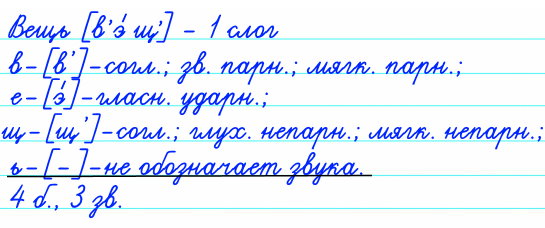 Вещь [в'э́ щ'] – 1 слог
в–[в']–согл.; зв. парн.; мягк. парн.;
е–[э́]–гласн. ударн.;
щ–[щ']–согл.; глух. непарн.; мягк. непарн.;
ь–[–]–не обозначает звука.
4 б., 3 зв.